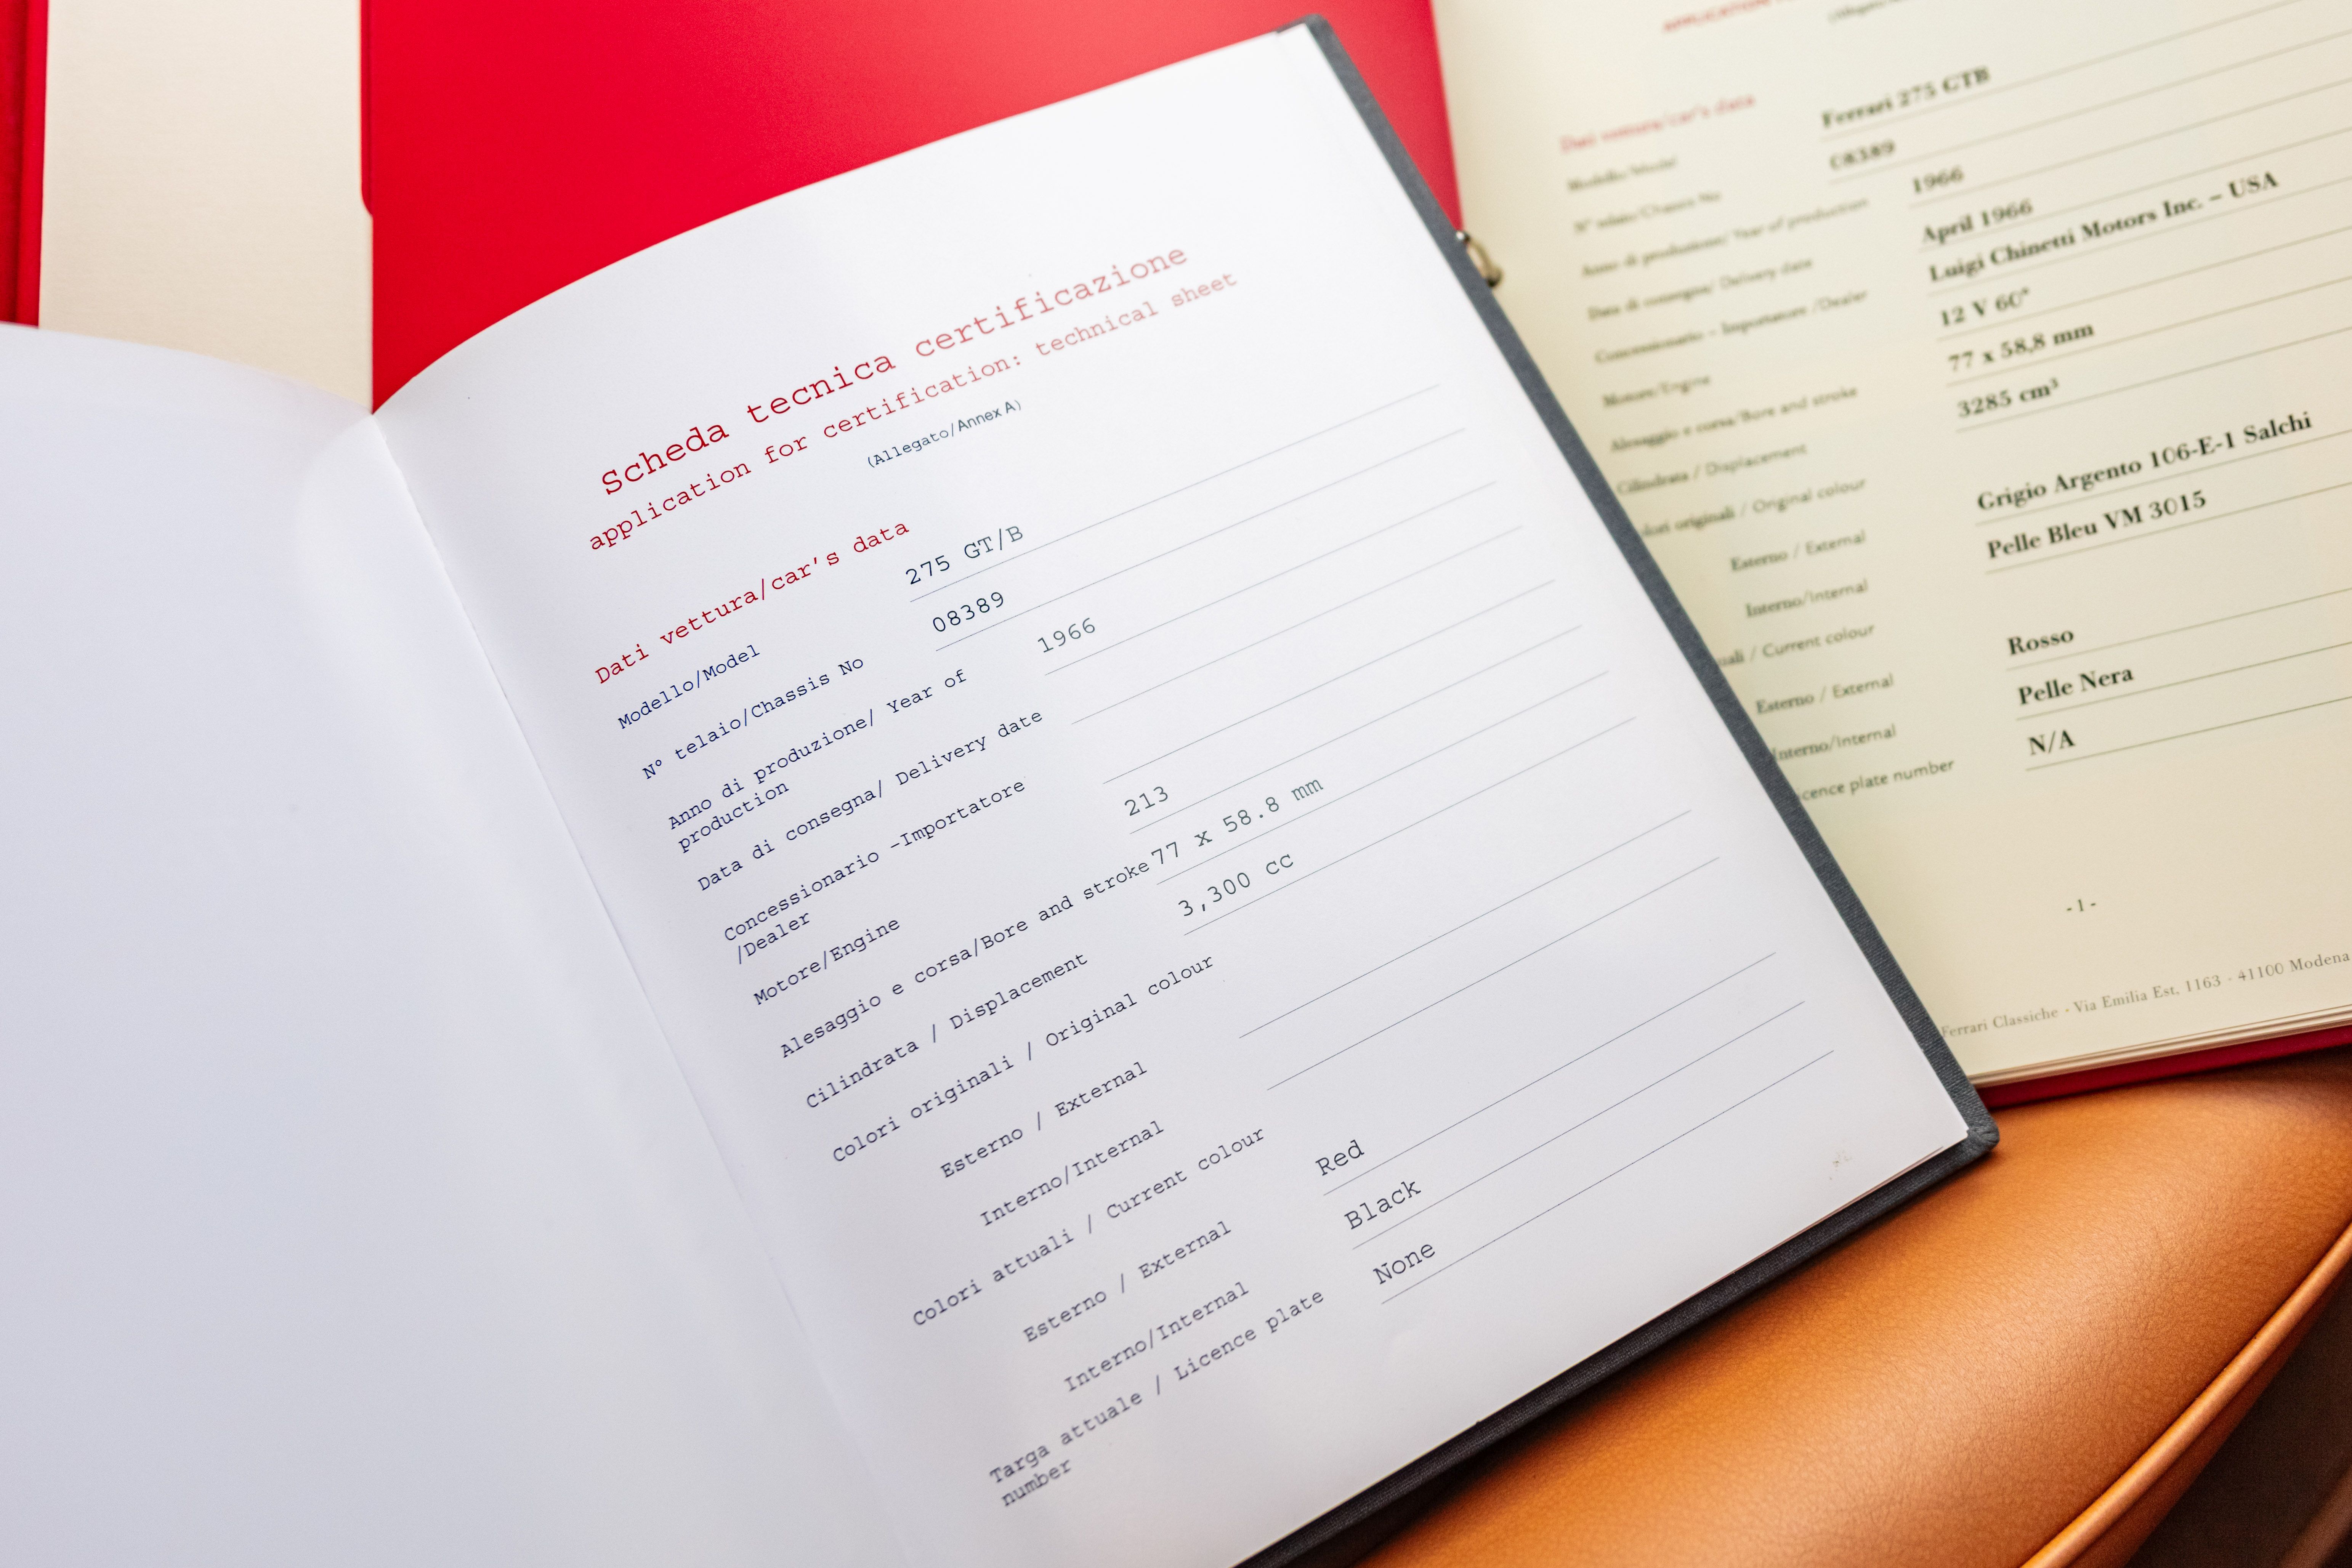 Scheda tecnica certificazione
application for certification: technical sheet
(Allegato/Annex A)
Dati vettura/car's data
Modello/Model 275 GT/B
N° telaio/Chassis No 08389
Anno di produzione/ Year of 1966
production
Data di consegna/ Delivery date
Concessionario -Importatore
/Dealer
Motore/Engine 213
Alesaggio e corsa/Bore and stroke 77 x 58.8 mm
Cilindrata / Displacement 3,300 cc
Colori originali / Original colour
Esterno / External
Interno/Internal
Colori attuali / Current colour
Esterno / External Red
Interno/Internal Black
Targa attuale / Licence plate None
number
Dati vettura/car's data
Modello/Model Ferrari 275 GTB
N° telaio/Chassis No 08389
Anno di produzione/ Year of production 1966
Data di consegna/ Delivery date April 1966
Concessionario - Importatore /Dealer Luigi Chinetti Motors Inc. – USA
Motore/Engine 12 V 60°
Alesaggio e corsa/Bore and stroke 77 x 58,8 mm
Cilindrata / Displacement 3285 cm³
originali / Original colour
Esterno / External Grigio Argento 106-E-1 Salchi
Interno/Internal Pelle Bleu VM 3015
/ Current colour
Esterno / External Rosso
Interno/Internal Pelle Nera
plate number N/A
- 1 -
Ferrari Classiche - Via Emilia Est, 1163 - 41100 Modena